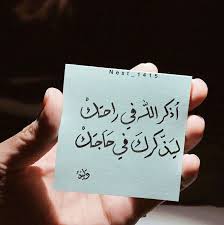 Next_1415
أذكر الله في راحتكْ
ليذكركَ في حَاجَتكْ